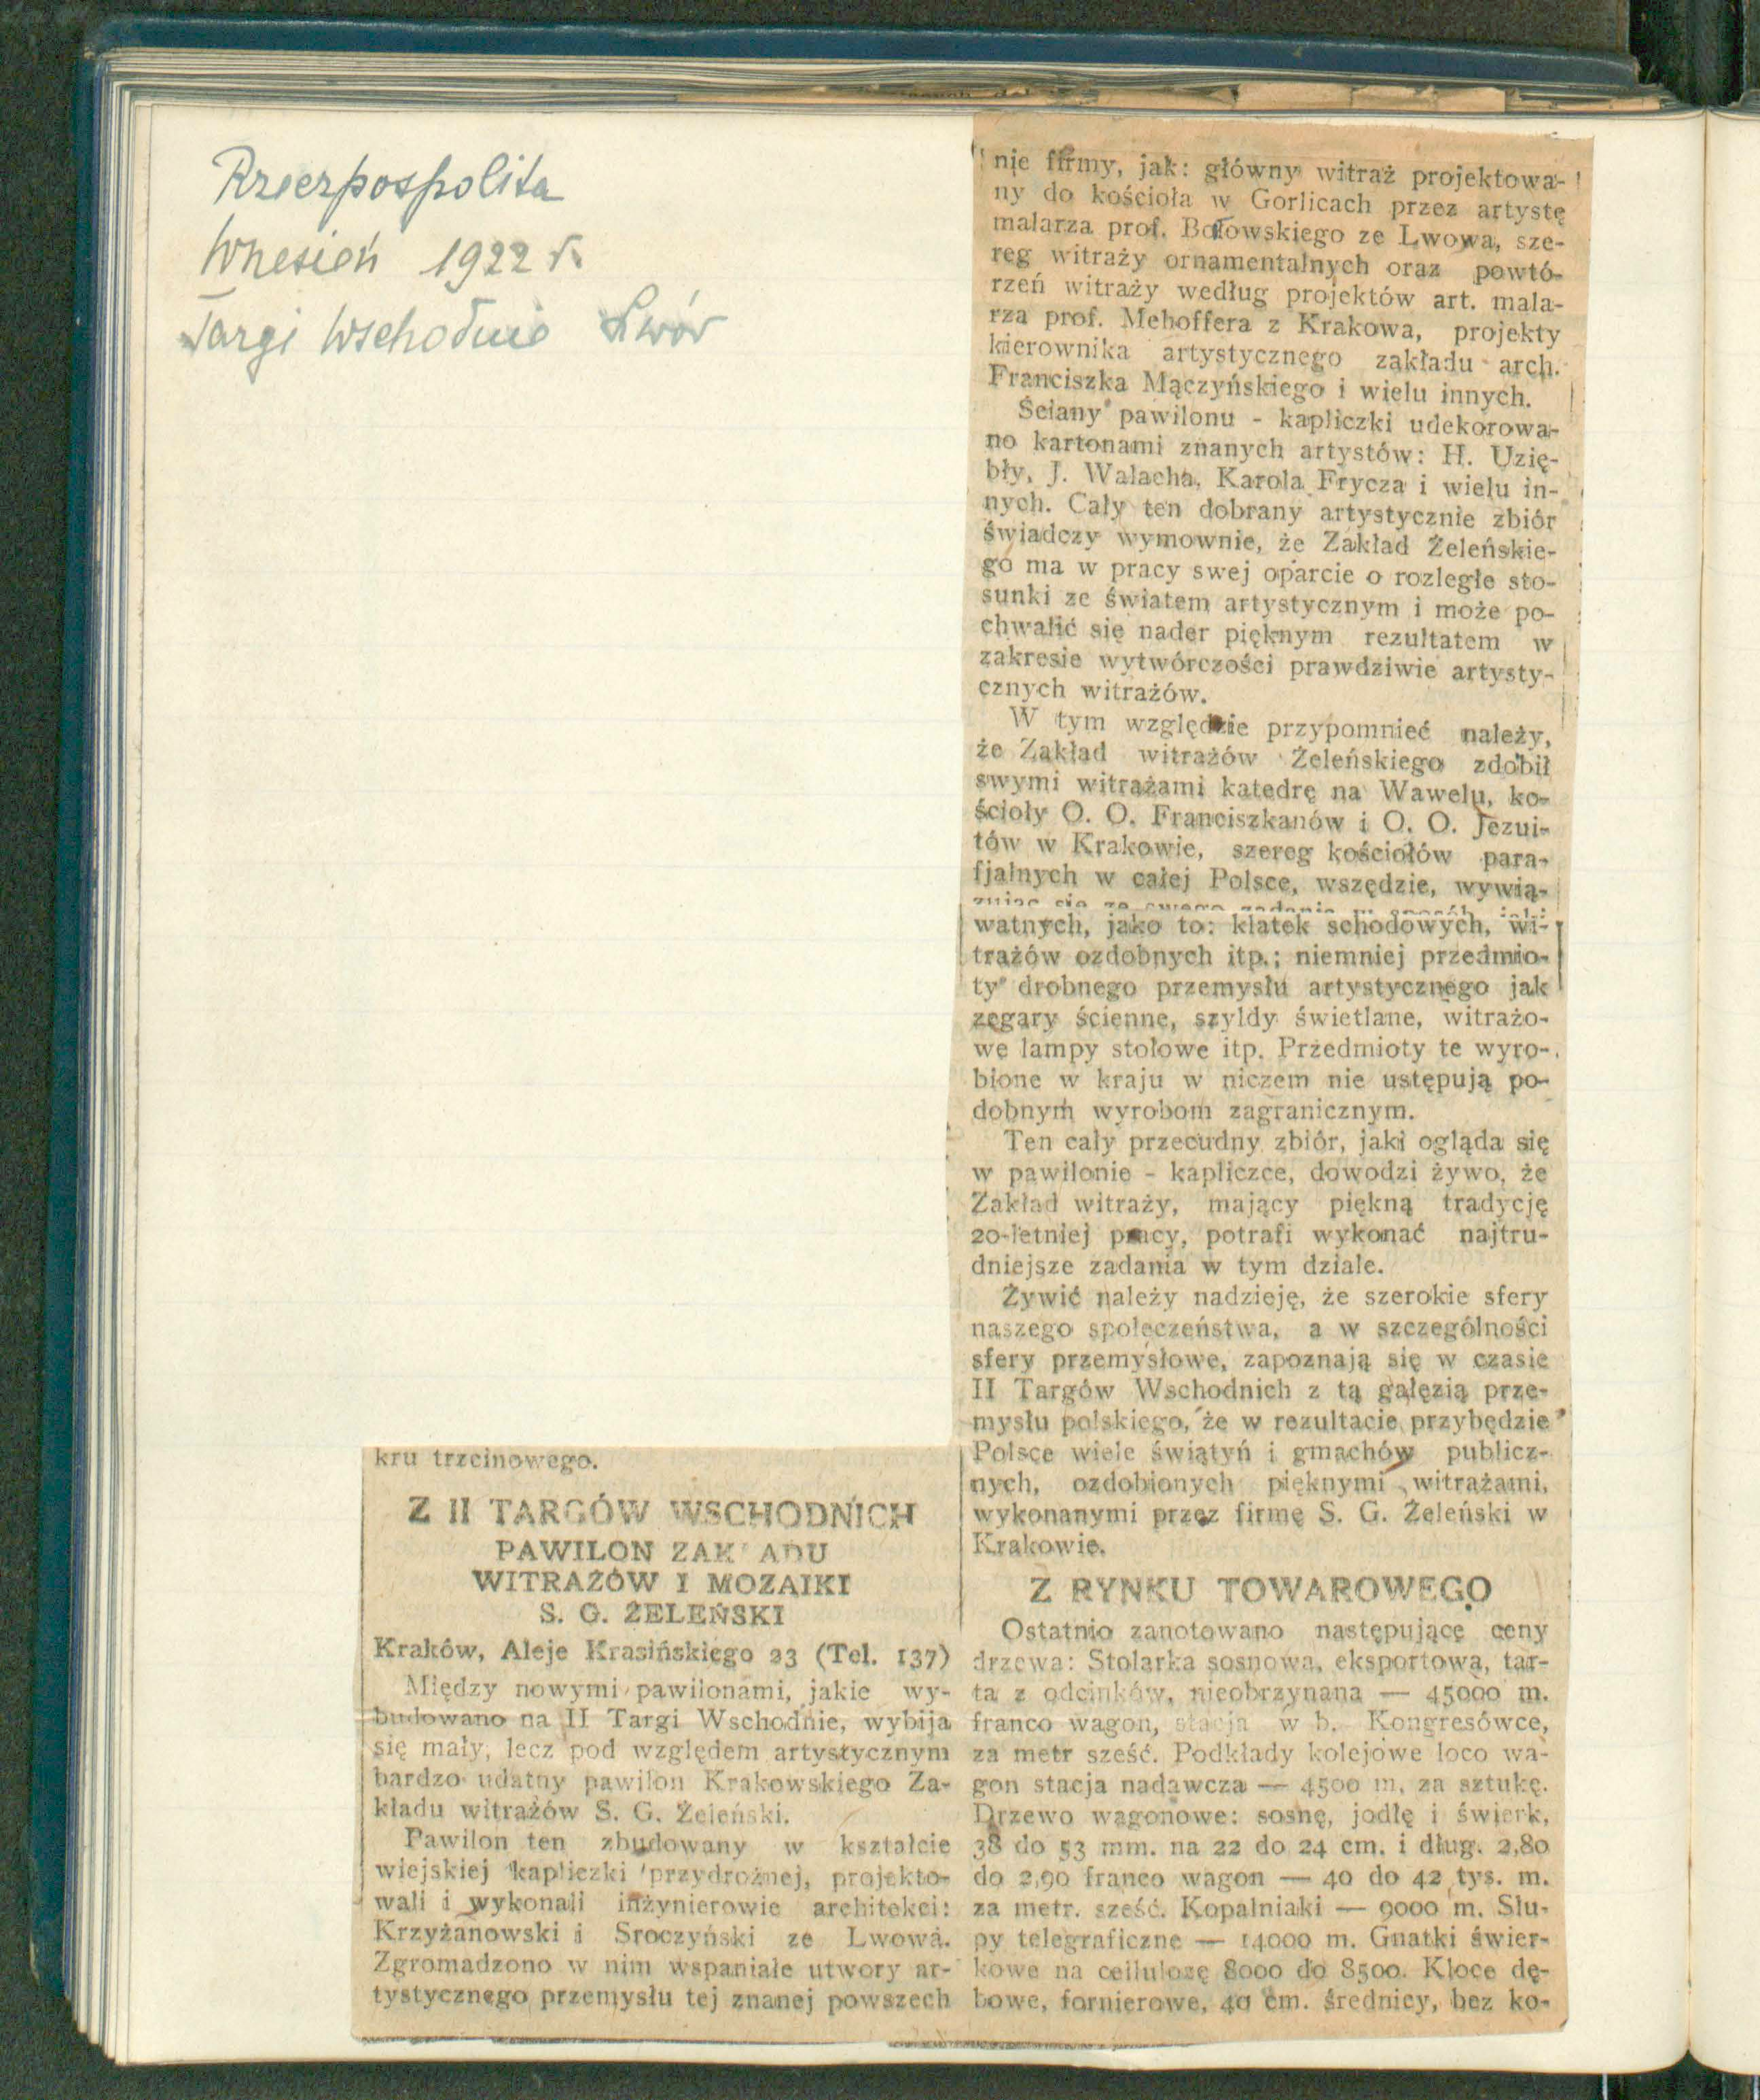 Rzeczpospolita
Wrzesień 1922 r.
Targi Wschodnie Lwów
kru trzcinowego.
Z II TARGÓW WSCHODNICH
PAWILON ZAK ADU
WITRAŻÓW I MOZAIKI
S. G. ŻELEŃSKI
Kraków, Aleje Krasińskiego 23 (Tel. 137)
Między nowymi pawilonami, jakie wy-
budowano na II Targi Wschodnie, wybija
się mały, lecz pod względem artystycznym
bardzo udatny pawilon Krakowskiego Za-
kładu witrażów S. G. Żeleński.
Pawilon ten zbudowany w kształcie
wiejskiej kapliczki przydrożnej, projekto-
wali i wykonali inżynierowie architekci:
Krzyżanowski i Sroczyński ze Lwowa.
Zgromadzono w nim wspaniałe utwory ar-
tystycznego przemysłu tej znanej powszech
nie firmy, jak: główny witraż projektowa-
ny do kościoła w Gorlicach przez artystę
malarza prof. Batowskiego ze Lwowa, sze-
reg witraży ornamentalnych oraz powtó-
rzeń witraży według projektów art. mala-
rza prof. Mehoffera z Krakowa, projekty
kierownika artystycznego zakładu arch.
Franciszka Mączyńskiego i wielu innych.
Ściany pawilonu - kapliczki udekorowa-
no kartonami znanych artystów: H. Uzię-
bły, J. Wałacha, Karola Frycza i wielu in-
nych. Cały ten dobrany artystycznie zbiór
świadczy wymownie, że Zakład Żeleńskie-
go ma w pracy swej oparcie o rozległe sto-
sunki ze światem artystycznym i może po-
chwalić się nader pięknym rezultatem w
zakresie wytwórczości prawdziwie artysty-
cznych witrażów.
W tym względzie przypomnieć należy,
że Zakład witrażów Żeleńskiego zdobił
swymi witrażami katedrę na Wawelu, ko-
ścioły O. O. Franciszkanów i O. O. Jezui-
tów w Krakowie, szereg kościołów para-
fjalnych w całej Polsce, wszędzie, wywią-
zując się ze swego zadania w sposób jaki
watnych, jako to: klatek schodowych, wi-
trażów ozdobnych itp.; niemniej przedmio-
ty drobnego przemysłu artystycznego jak
zegary ścienne, szyldy świetlane, witrażo-
we lampy stołowe itp. Przedmioty te wyro-
bione w kraju w niczem nie ustępują po-
dobnym wyrobom zagranicznym.
Ten cały przecudny zbiór, jaki ogląda się
w pawilonie - kapliczce, dowodzi żywo, że
Zakład witraży, mający piękną tradycję
20-letniej pracy, potrafi wykonać najtru-
dniejsze zadania w tym dziale.
Żywić należy nadzieję, że szerokie sfery
naszego społeczeństwa, a w szczególności
sfery przemysłowe, zapoznają się w czasie
II Targów Wschodnich z tą gałęzią prze-
mysłu polskiego, że w rezultacie przybędzie
Polsce wiele świątyń i gmachów publicz-
nych, ozdobionych pięknymi witrażami,
wykonanymi przez firmę S. G. Żeleński w
Krakowie.
Z RYNKU TOWAROWEGO
Ostatnio zanotowano następujące ceny
drzewa: Stolarka sosnowa, eksportowa, tar-
ta z odcinków, nieobrzynana — 45000 m.
franco wagon, stacja w b. Kongresówce,
za metr sześć. Podkłady kolejowe loco wa-
gon stacja nadawcza — 4500 m. za sztukę.
Drzewo wagonowe: sosnę, jodłę i świerk,
38 do 53 mm. na 22 do 24 cm. i dług. 2,80
do 2,90 franco wagon — 40 do 42 tys. m.
za metr. sześć. Kopalniaki — 9000 m. Słu-
py telegraficzne — 14000 m. Gnatki świer-
kowe na cellulozę 8000 do 8500. Kloce dę-
bowe, fornierowe, 40 cm. średnicy, bez ko-